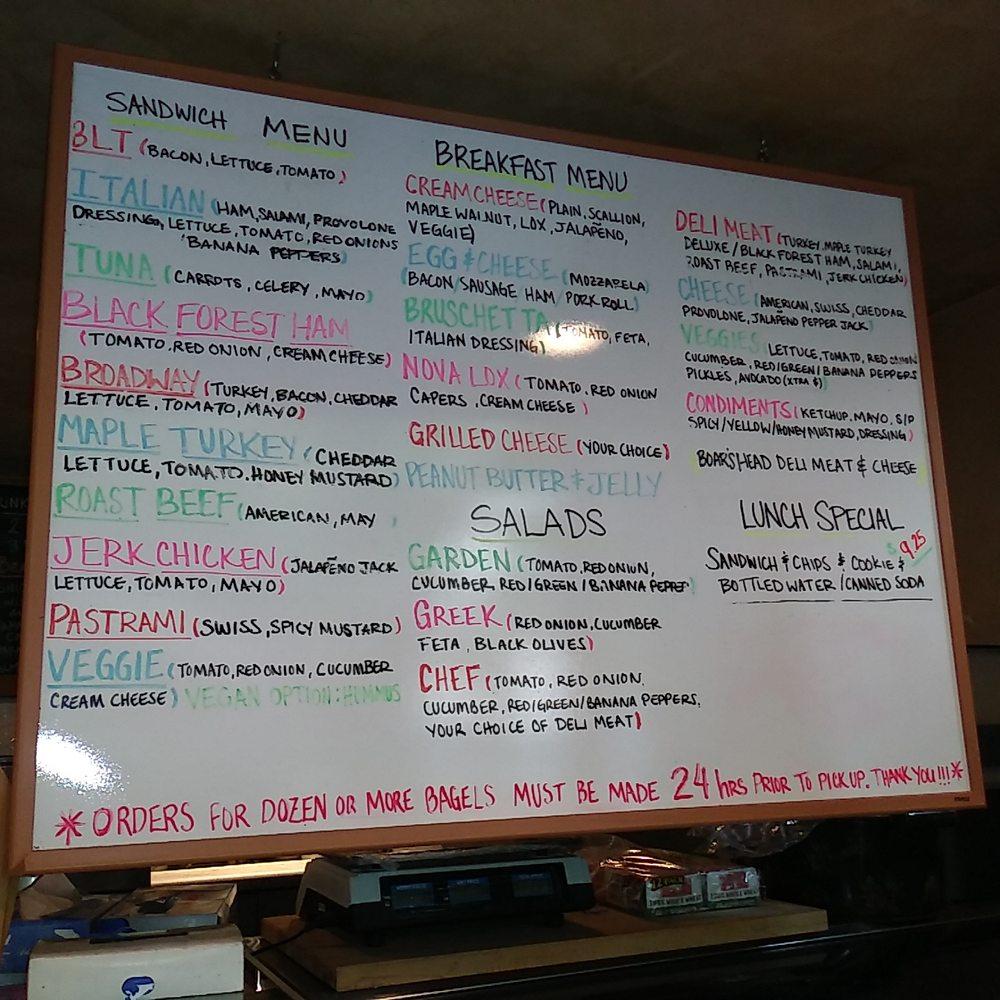 SANDWICH MENU
BLT (BACON, LETTUCE, TOMATO)
ITALIAN (HAM, SALAMI, PROVOLONE
DRESSING, LETTUCE, TOMATO, RED ONIONS
BANANA PEPPERS)
TUNA (CARROTS, CELERY, MAYO)
BLACK FOREST HAM
(TOMATO, RED ONION, CREAM CHEESE)
BROADWAY (TURKEY, BACON, CHEDDAR
LETTUCE, TOMATO, MAYO)
MAPLE TURKEY (CHEDDAR
LETTUCE, TOMATO, HONEY MUSTARD)
ROAST BEEF (AMERICAN, MAY )
JERK CHICKEN (JALAPEÑO JACK
LETTUCE, TOMATO, MAYO)
PASTRAMI (SWISS, SPICY MUSTARD)
VEGGIE (TOMATO, RED ONION, CUCUMBER
CREAM CHEESE) VEGAN OPTION: HUMMUS
BREAKFAST MENU
CREAM CHEESE (PLAIN, SCALLION,
MAPLE WALNUT, LOX, JALAPEÑO,
VEGGIE)
EGG & CHEESE (MOZZARELA)
(BACON/SAUSAGE HAM/PORK ROLL)
BRUSCHETTA (TOMATO, FETA,
ITALIAN DRESSING)
NOVA LOX (TOMATO, RED ONION
CAPERS, CREAM CHEESE)
GRILLED CHEESE (YOUR CHOICE)
PEANUT BUTTER & JELLY
SALADS
GARDEN (TOMATO, RED ONION,
CUCUMBER, RED/GREEN/BANANA PEPPER)
GREEK (RED ONION, CUCUMBER
FETA, BLACK OLIVES)
CHEF (TOMATO, RED ONION,
CUCUMBER, RED/GREEN/BANANA PEPPERS,
YOUR CHOICE OF DELI MEAT)
DELI MEAT (TURKEY, MAPLE TURKEY
DELUXE/BLACK FOREST HAM, SALAMI,
ROAST BEEF, PASTRAMI, JERK CHICKEN)
CHEESE (AMERICAN, SWISS, CHEDDAR
PROVOLONE, JALAPEÑO PEPPER JACK)
VEGGIES (LETTUCE, TOMATO, RED ONION
CUCUMBER, RED/GREEN/BANANA PEPPERS
PICKLES, AVOCADO (XTRA $)
CONDIMENTS (KETCHUP, MAYO, S/P
SPICY/YELLOW/HONEY MUSTARD, DRESSING)
BOARSHEAD DELI MEAT & CHEESE
LUNCH SPECIAL
$9.25
SANDWICH & CHIPS & COOKIE &
BOTTLED WATER/CANNED SODA
*ORDERS FOR DOZEN OR MORE BAGELS MUST BE MADE 24 hrs PRIOR TO PICK UP. THANK YOU!!!*